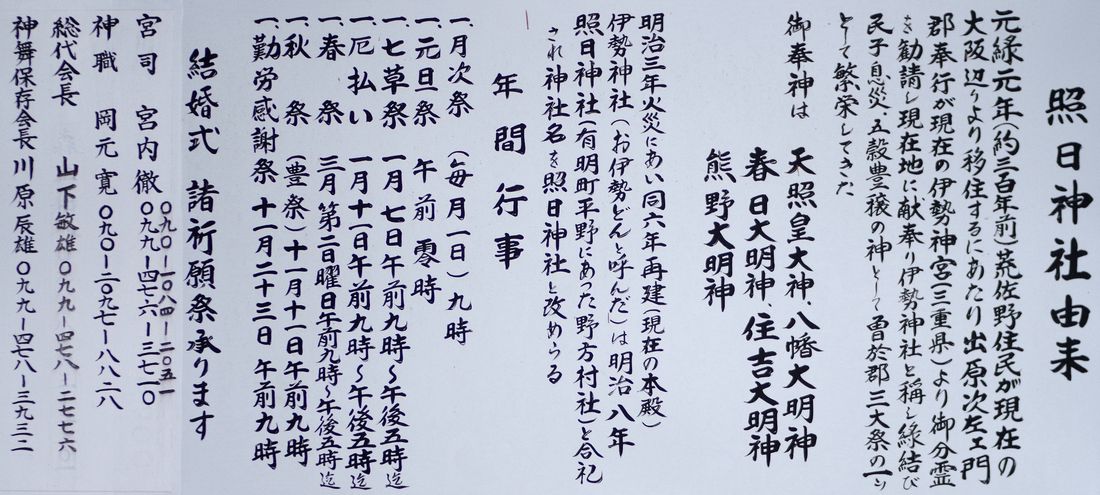 照日神社由来
元緑元年(約三百年前)荒佐野住民が現在の
大阪辺りより移住するにあたり出原次左ェ門
郡奉行が現在の伊勢神宮(三重県)より御分霊
を勧請し現在地に献奉り伊勢神社と称し縁結び
民子息災、五穀豊穣の神として曽於郡三大祭の一つ
として繁栄してきた
御奉神は 天照皇大神、八幡大明神
春日大明神、住吉大明神
熊野大明神
明治三年火災にあい同六年再建(現在の本殿)
伊勢神社(お伊勢どんと呼んだ)は明治八年
照日神社(有明町平野にあった野方村社)と合祀
され神社名を照日神社と改めらる
年間行事
一、月次祭 (毎月一日)九時
一、元旦祭 午前零時
一、七草祭 一月七日午前九時~午後五時迄
一、厄払い 一月十一日午前九時~午後五時迄
一、春祭 三月第二日曜日午前九時~午後五時迄
一、秋祭 (豊祭)十一月十一日午前九時
一、勤労感謝祭 十一月二十三日 午前九時
結婚式 諸祈願祭承ります
宮司 宮内徹 〇九〇-一〇八四-二〇五一
〇九九-四七六-三七一〇
神職 岡元寛 〇九〇-二〇九七-八八二八
総代会長 山下敏雄 〇九九-四七八-二七七六
神舞保存会長 川原辰雄 〇九九-四七八-三九三二